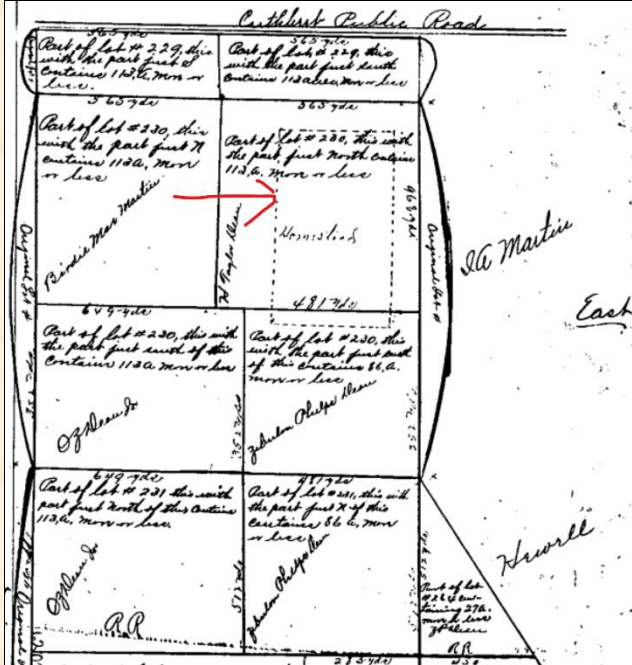 Cuthbert Public Road
565 yds
Part of lot # 229, this
with the part just S
Contains 113 A, mon or
less.
565 yds
Part of lot # 229, this
with the part just south
Contains 113 acres, mon or less
565 yds
Part of lot # 230, this
with the part just N
contains 113 A, mon
or less
Birdie Mae Martin
565 yds
Part of lot # 230, this with
the part, just North contains
113, A, mon or less
W Taylor Dean
Homestead
968 yds
Original Lot #
Original Lot #
I A Martin
East
649 yds
Part of lot # 230, this with
the part just south of this
Contains 113 A mon or less
O Z Dean Jr
352 yds
481 yds
Part of lot # 230, this
with the part just south
of this contains 86, A.
mon or less
Zebulon Phelps Dean
649 yds
Part of lot # 231 this with
part just North of this Contains
113, A, mon or less.
O Z Dean Jr
RR
481 yds
Part of lot # 231, this with
the part just N of this
Contains 86 A, mon
or less
Zebulon Phelps Dean
Hewell
Part of lot
# 264 con-
taining 27 A.
mon or less
Dean
RR
Original
283 yds
430